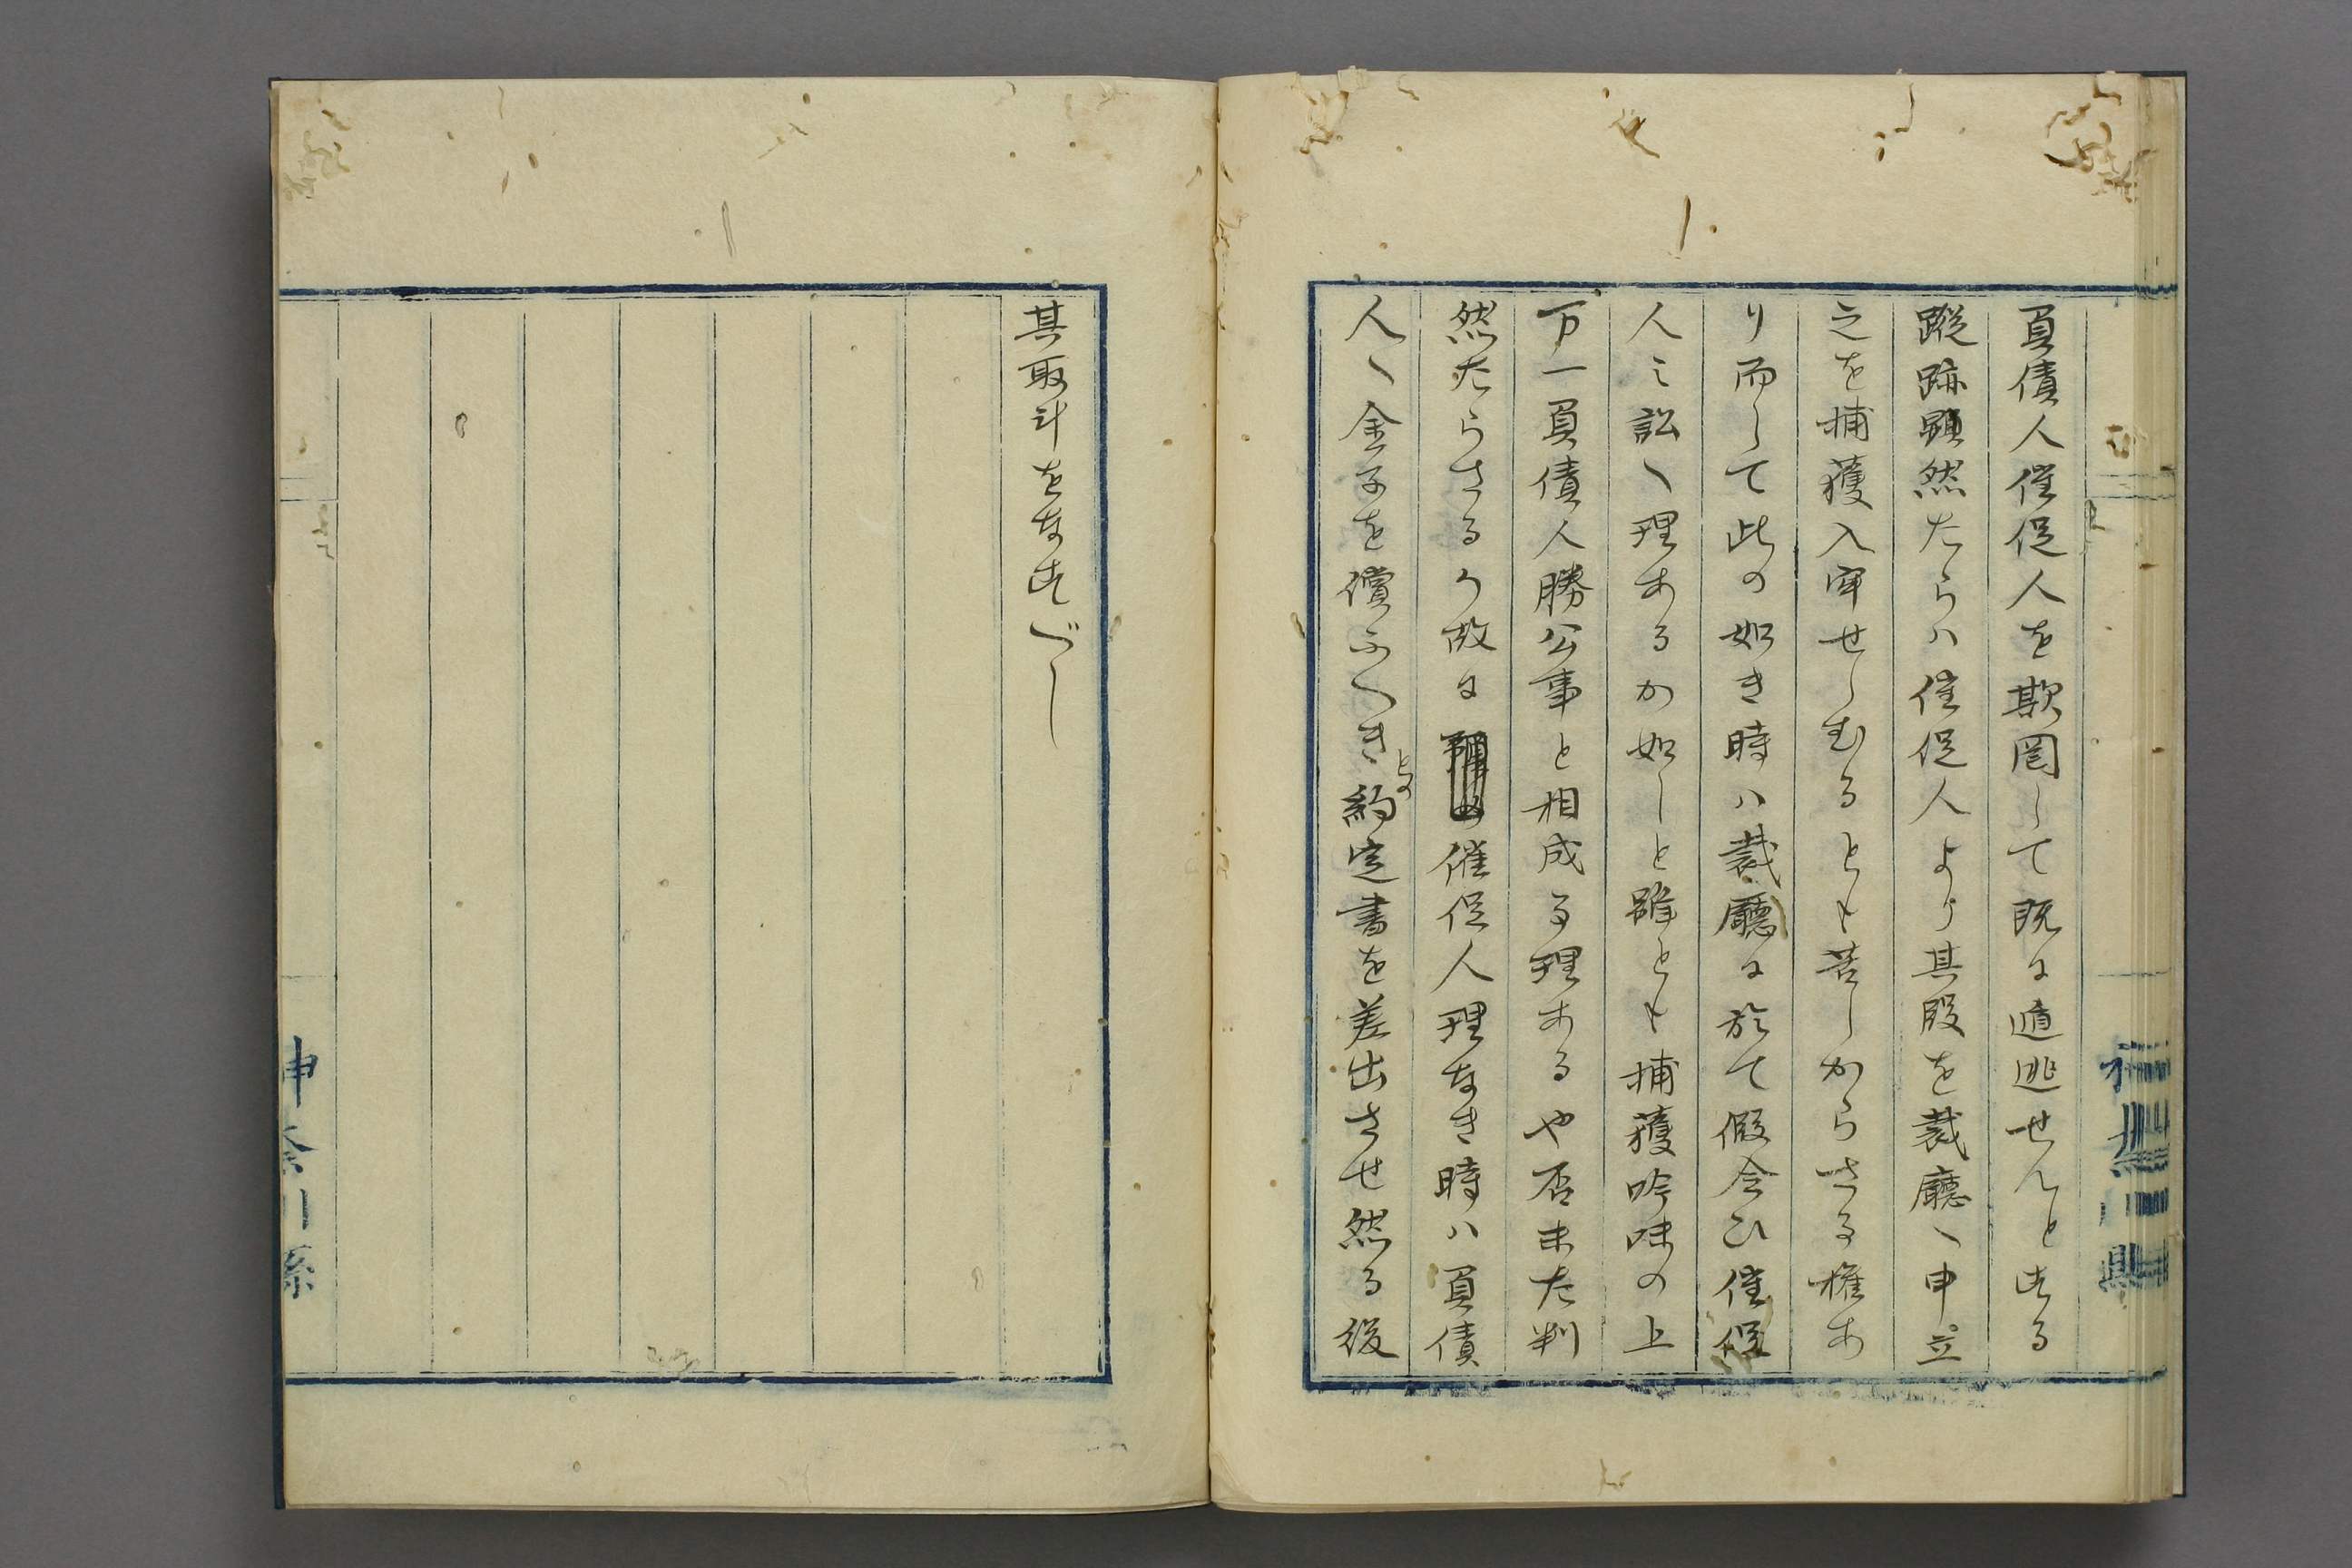 負債人催促人を欺罔して既に遁逃せんとする
蹤跡顕然たらハ催促人より其段を裁廳へ申立
之を捕獲入牢せしむるとも苦しからさる権あ
り而して此の如き時ハ裁廳に於て假令ひ催促
人之訟へ理あるか如しと雖とも捕獲吟味の上
万一負債人勝公事と相成る理あるや否未た判
然たらさるか故に催促人理なき時ハ負債
人へ金子を償ふへきとの約定書を差出させ然る後
其取計をなすべし
神奈川縣